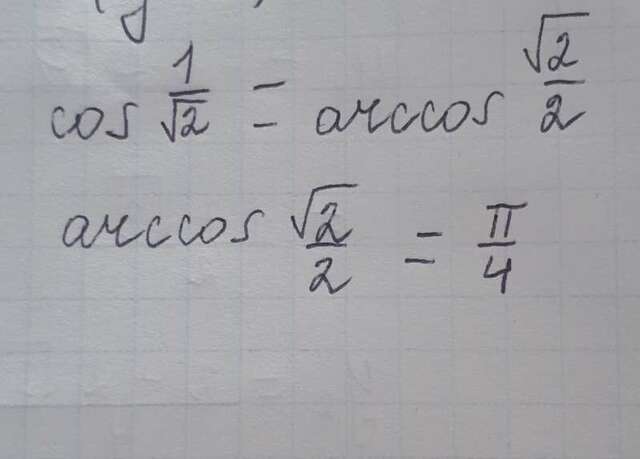 cos 1/√2 = arccos √2/2
arccos √2/2 = π/4